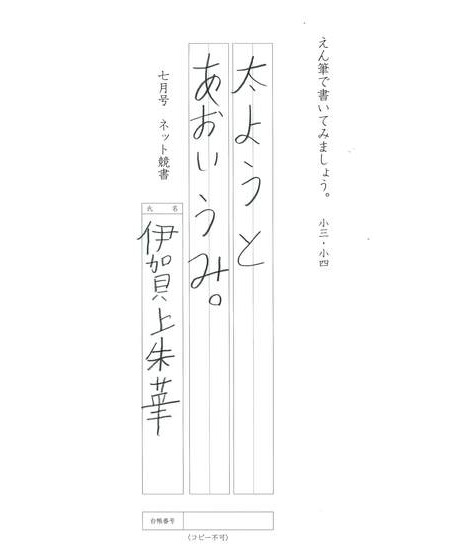 えん筆で書いてみましょう。 小三・小四
太ようと
あおいうみ。
七月号 ネット競書
氏 名
伊賀上朱華
台帳番号
(コピー不可)